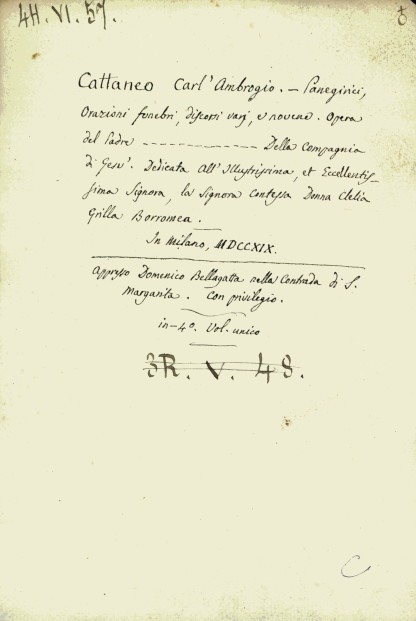 4H. VI. 57.
Cattaneo Carl' Ambrogio. – Panegirici,
Orazioni funebri, discorsi varj, e novene. Opera
del Padre ------------- Della Compagnia
di Gesu'. Dedicata All' Illustrissima, et Eccellentis-
sima Signora, la Signora Contessa Donna Clelia
Grilla Borromea.
In Milano, MDCCXIX.
Appresso Domenico Bellagatta nella Contrada di S.
Margarita. Con privilegio.
in-4º. Vol. unico
3R. V. 48.
C